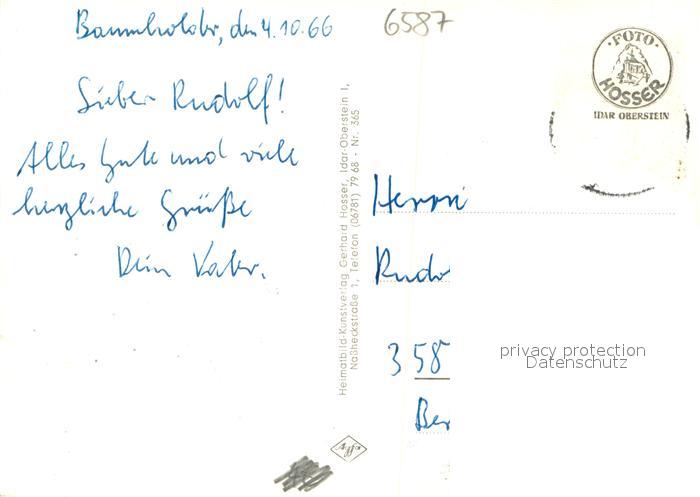 Baumholder, den 4.10.66
Lieber Rudolf!
Alles Gute und viele
herzliche Grüße
Dein Vater.
6587
Heimatbild-Kunstverlag Gerhard Hosser, Idar-Oberstein 1,
Naßheckstraße 1, Telefon (06781) 79 68 - Nr. 365
Agfa
· FOTO ·
HOSSER
IDAR OBERSTEIN
Herrn
Rudo
358
Ber
privacy protection
Datenschutz